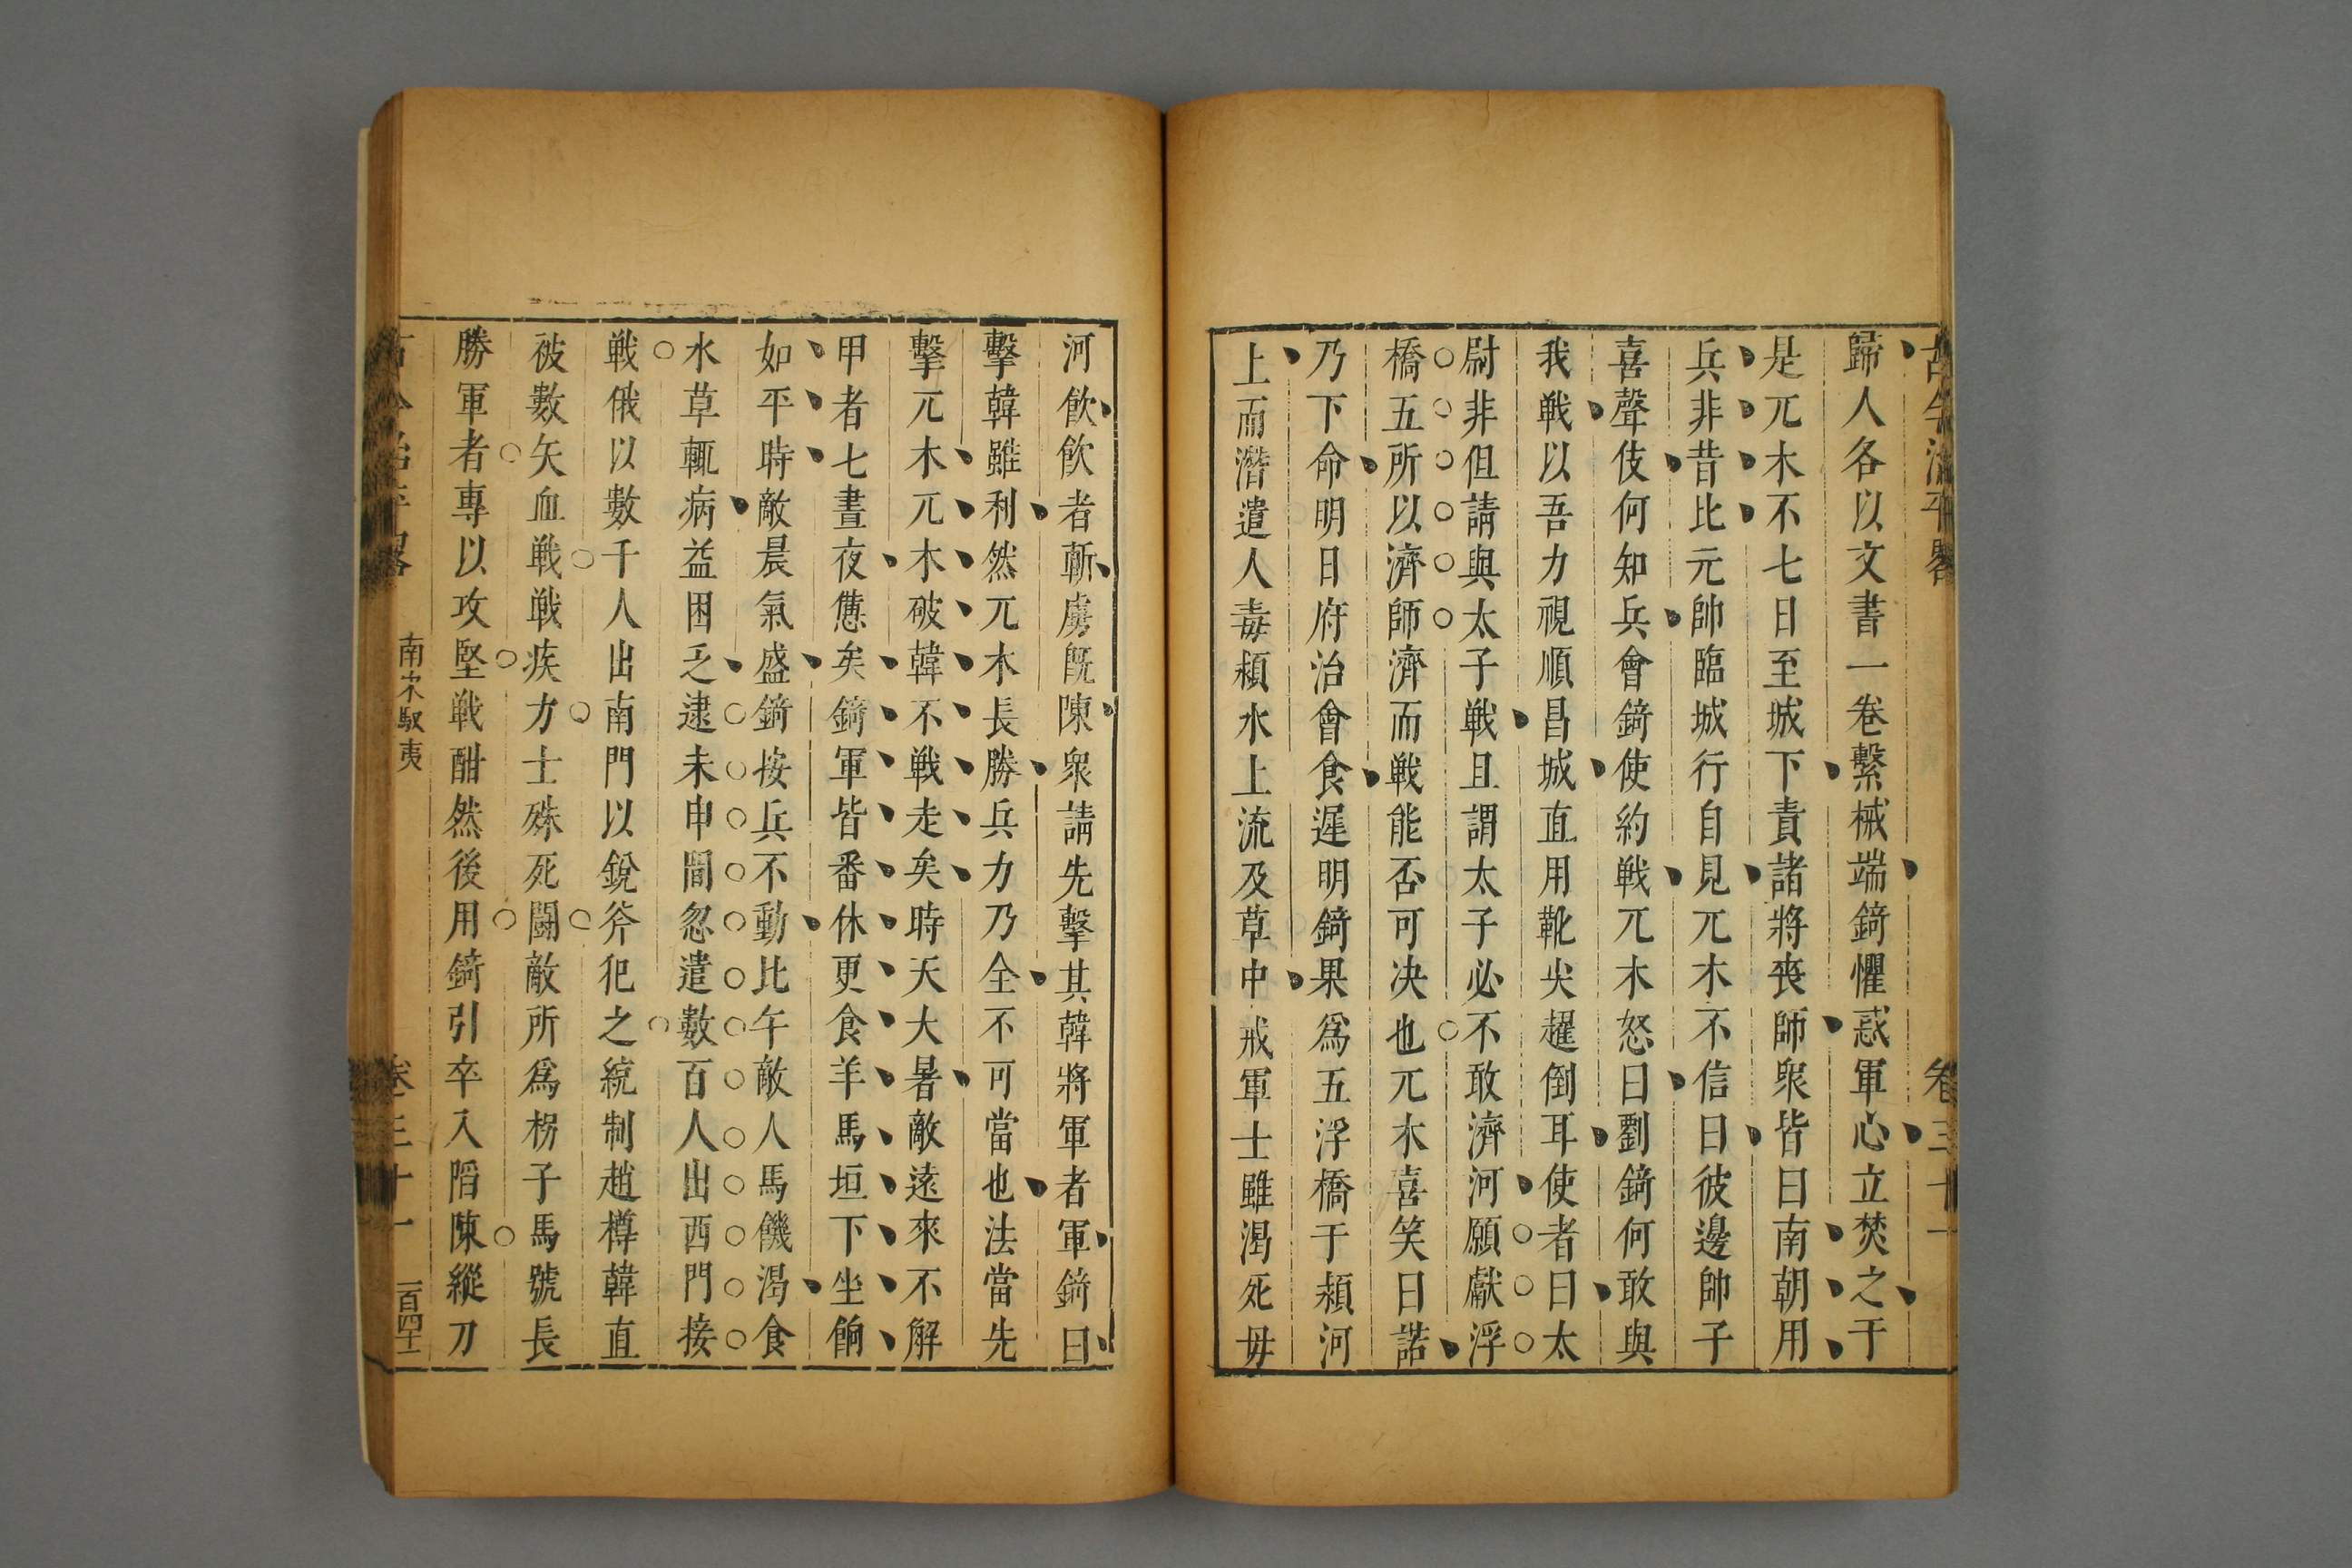 古今治平畧
卷三十一
歸人各以文書一卷繫械端錡懼惑軍心立焚之于
是兀木不七日至城下責諸將丧師衆皆曰南朝用
兵非昔比元帥臨城行自見兀木不信曰彼邊帥子
喜聲伎何知兵會錡使約戰兀木怒曰劉錡何敢與
我戰以吾力視順昌城直用靴尖趯倒耳使者曰太
尉非但請與太子戰且謂太子必不敢濟河願獻浮
橋五所以濟師濟而戰能否可决也兀木喜笑曰諾
乃下命明日府治會食遲明錡果爲五浮橋于潁河
上而潛遣人毒潁水上流及草中戒軍士雖渴死毋
河飲飲者斬虜既陳衆請先擊其韓將軍者軍錡曰
擊韓雖利然兀木長勝兵力乃全不可當也法當先
擊兀木兀木破韓不戰走矣時天大暑敵遠來不解
甲者七晝夜憊矣錡軍皆番休更食羊馬垣下坐餉
如平時敵晨氣盛錡按兵不動比午敵人馬饑渴食
水草輒病益困乏逮未申間忽遣數百人出西門接
戰俄以數千人出南門以銳斧犯之統制趙樽韓直
被數矢血戰戰疾力士殊死鬬敵所爲枴子馬號長
勝軍者專以攻堅戰酣然後用錡引卒入陷陳縱刀
古今治平畧
南宋馭夷
卷三十一